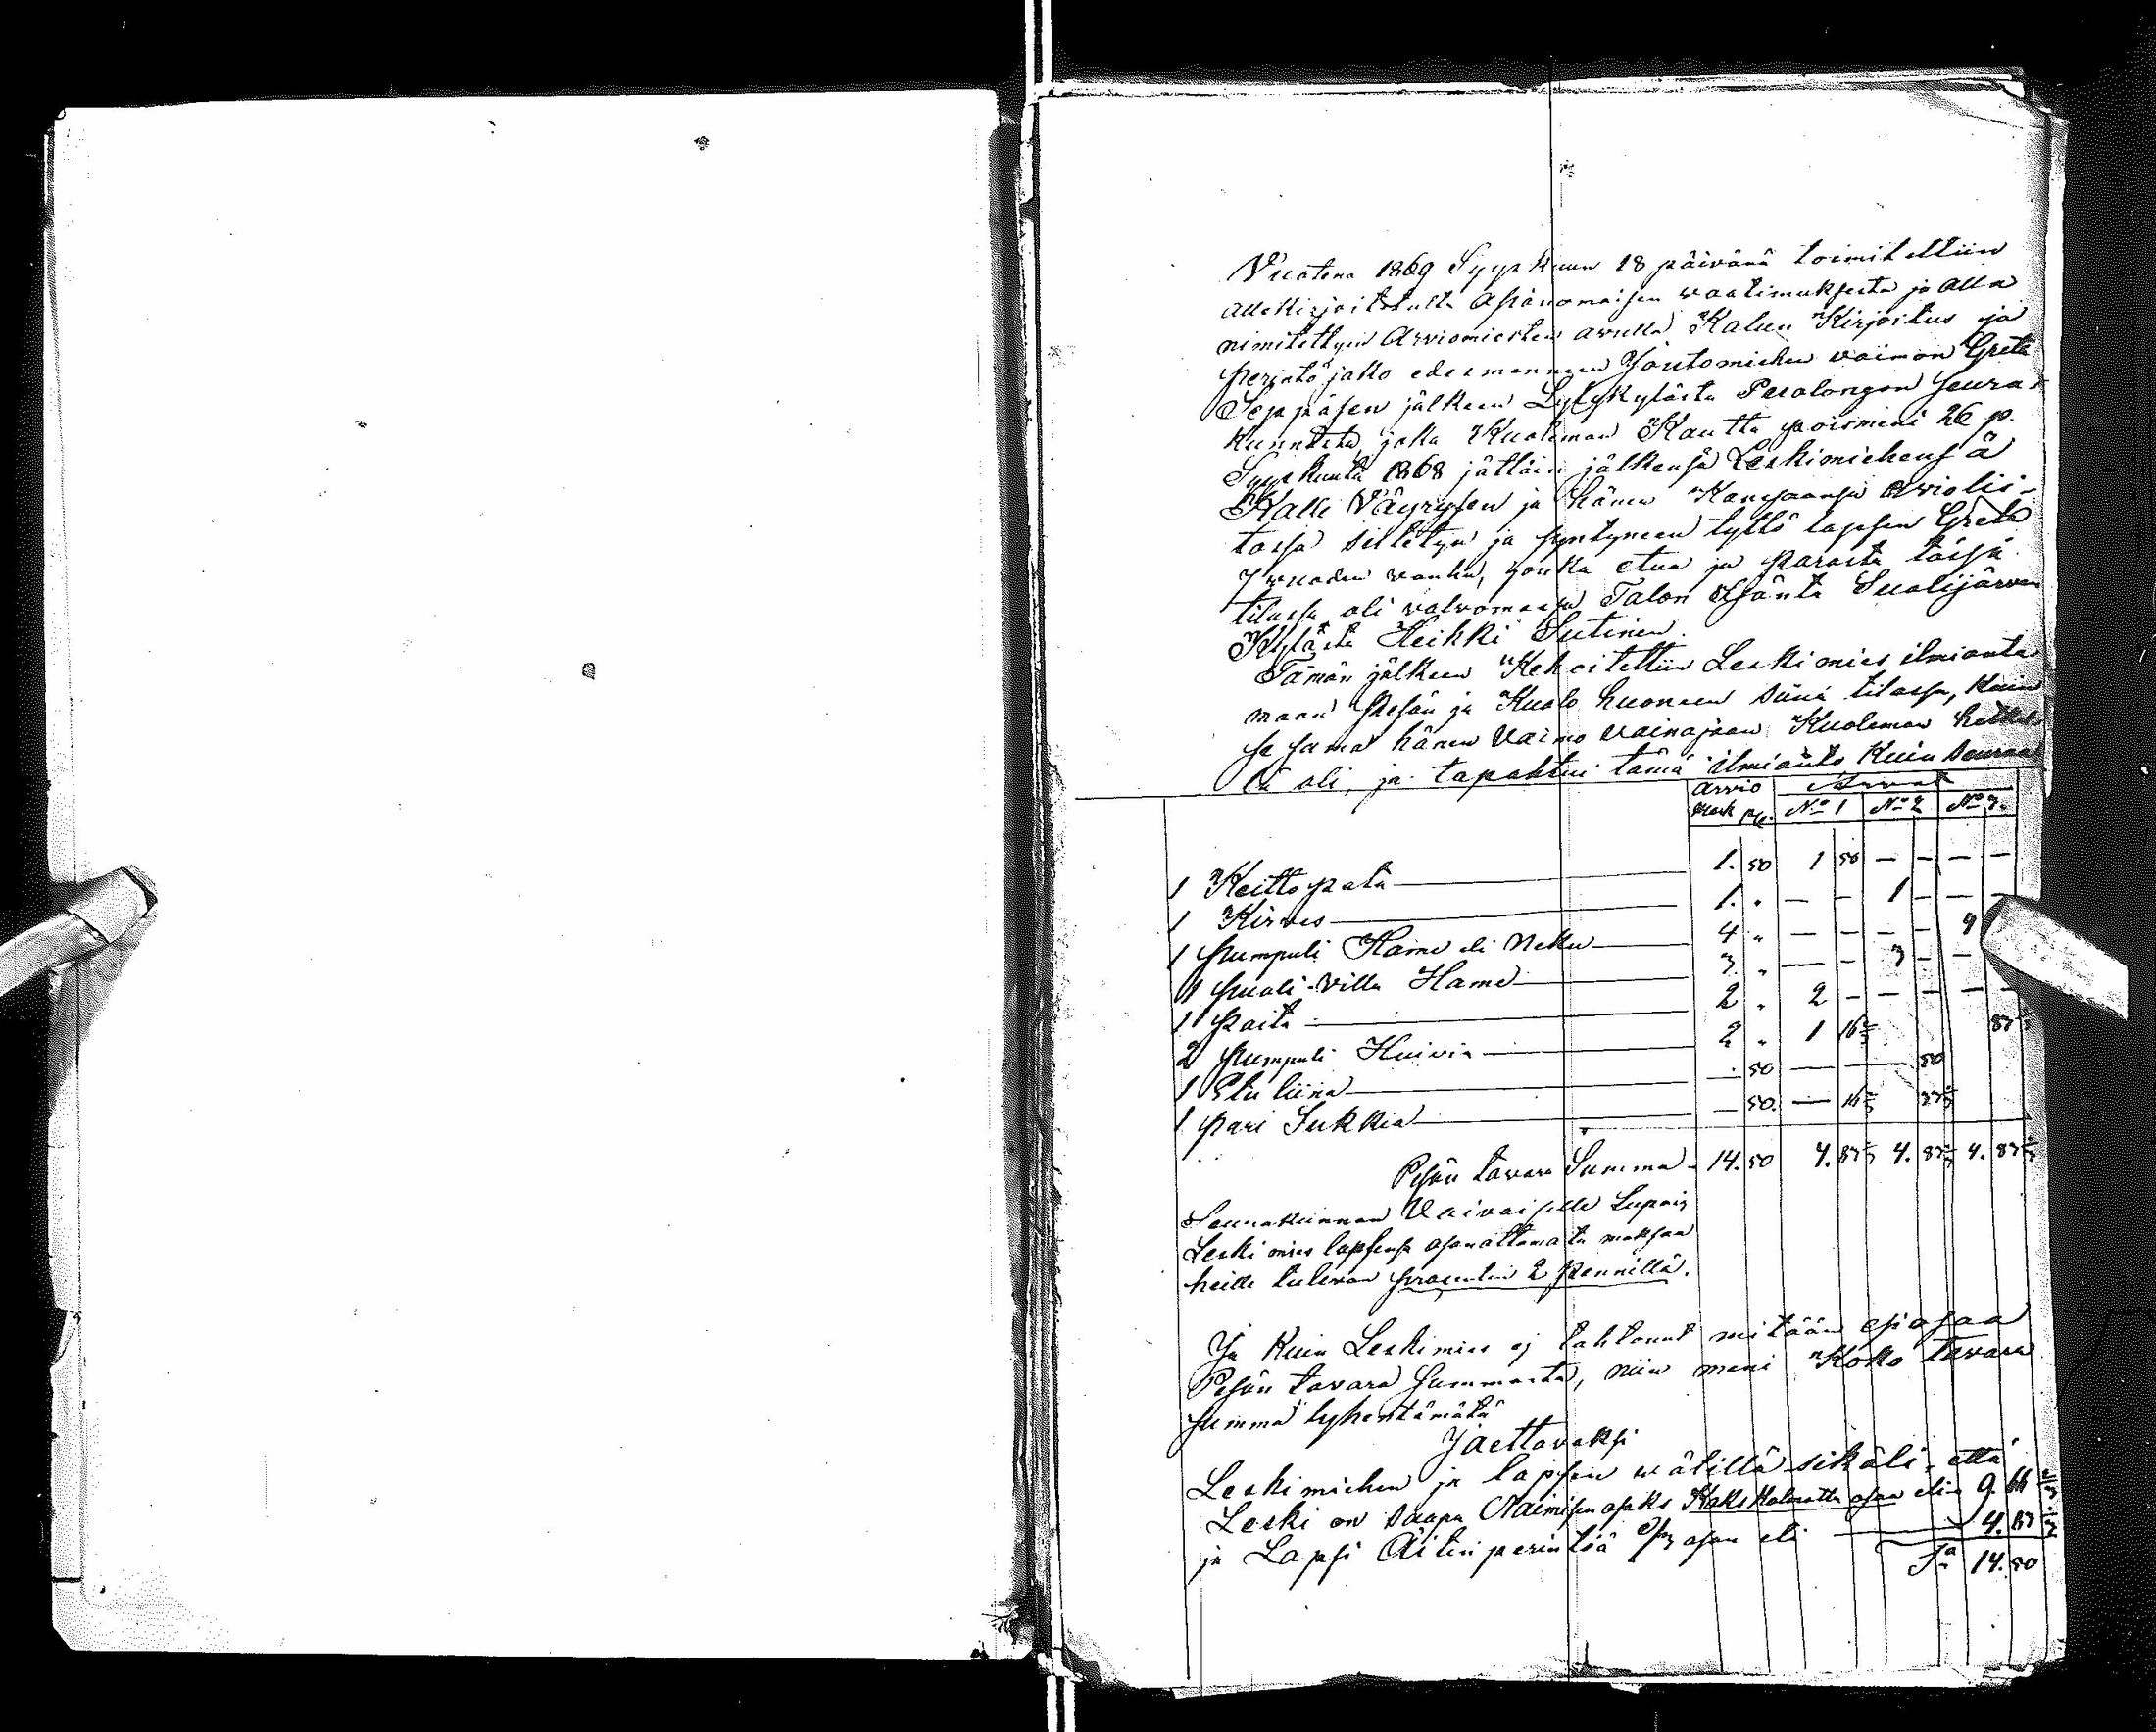 Vuotena 1869 Syyskuun 18 päivänä toimitettiin
allekirjoitetulta Asianomaisen waatimuksesta ja alla
nimitettyin Arviomiesten avulla Kalun Kirjoitus ja
perintö jakko edesmenneen Joutomiehen vaimon Greta
Seppäsen jälkeen Lylykylästä Puolangon seura-
kunnasta, joka Kuoleman Kautta poismeni 26 p.
Syyskuuta 1868 jättäin jälkeensä Leskimiehensä
Kalle Väyrysen ja hänen Kanssaansa aviolii-
tossa siitetyn ja syntyneen tyttö lapsen Greta
7 vuoden vanha, jonka etua ja parasta täsä
tilassa oli valvomassa Talon Isäntä Suolijärven
Kylästä Heikki Sutinen.
Tämän jälkeen Kehoitettiin Leskimies ilmianta
maan Pesän ja Kuolo huoneen siinä tilassa, kuin
se sama hänen Vaimo vainajaan Kuoleman hetkel-
lä oli, ja tapahtui tämä ilmianto Kuin seuraa
Arvio Arvat
Mark pe. No 1 No 2 No 3.
1 Keittopata 1. 50 1 50 — — — —
1 Kirves 1. „ — — 1 — — —
1 pumpuli Hame eli Nekku 4 „ — — — — 4
1 puoli-villa Hame 3 „ — — 3 — —
1 paita 2 „ 2 — — — — —
2 pumpuli Huivia 2 „ 1 16 2/3 83 1/3
1 Eliina — 50 — — 50
1 pari Sukkia — 50. — 16 2/3 33 1/3
Pesän tavara Summa 14. 50 4. 83 1/3 4. 83 1/3 4. 83 1/3
Seurakunnan Vaivaisille Lupais
Leskimies lapsensa osanottamata maksaa
heille tulevan prosentin 2 pennillä.
Ja Kuin Leskimies ej tahtonut mitään esiosaa
Pesän tavara Summasta, niin meni Koko tavara
summa lyhentämätä
Jaettavaksi
Leskimiehen ja lapsen wälillä sikäli, että
Leski on saapa Naimisen osaks Kaks Kolmatta osaa eli 9. 66 2/3
ja Lapsi Äitin perintöä 1/3 osan eli 4. 83 1/3
Sa 14. 50